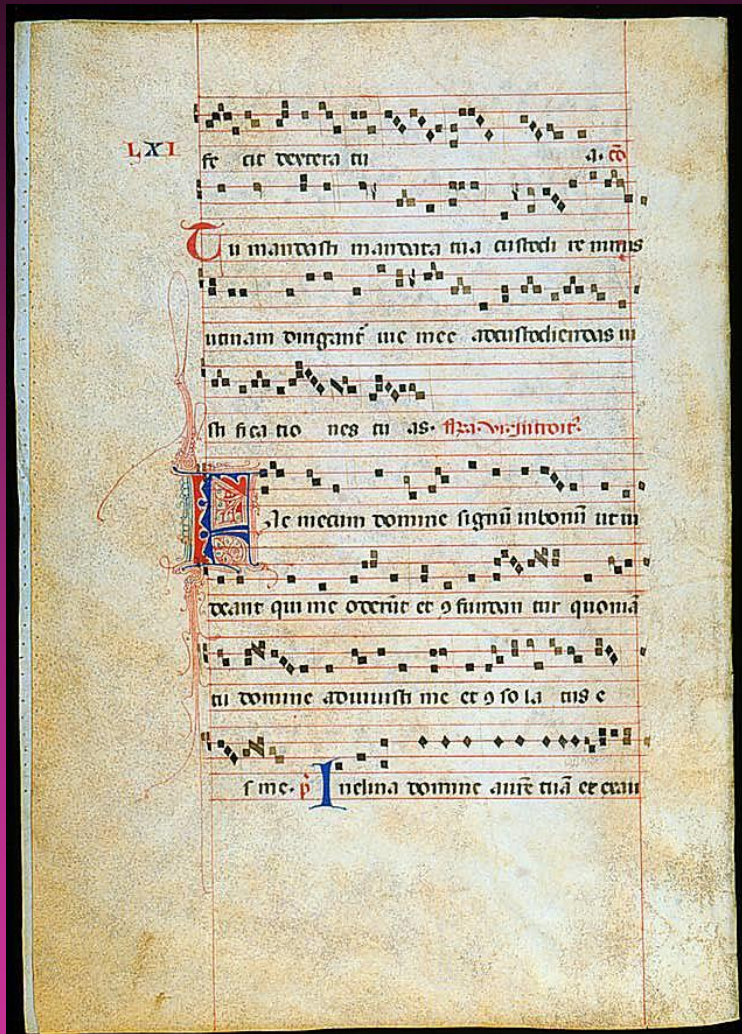 LXI
fe cit dextera tu a. cō
Tu mandasti mandata tua custodi re nimis
utinam dirigant̄ uie mee adcustodiendas iu
sti fica tio nes tu as.
Fac mecum domine signū inbonū ut ui
deant qui me oderūt et ꝯ fundan tur quoniā
tu domine adiuuisti me et ꝯ so la tus e
s me. p̄ Inclina domine aurē tuā et exau